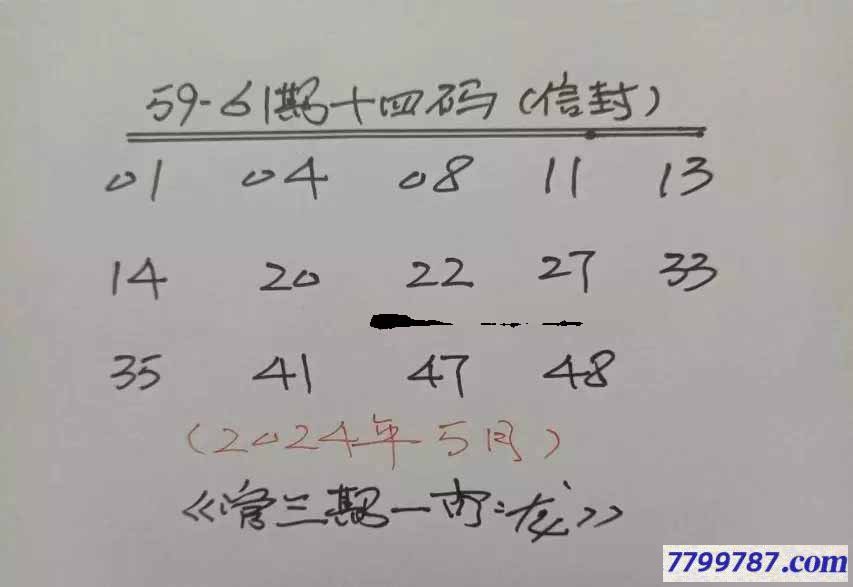 59-61期十四码(信封)
01 04 08 11 13
14 20 22 27 33
35 41 47 48
(2024年5月)
《管三期一肖:龙》
7799787.com